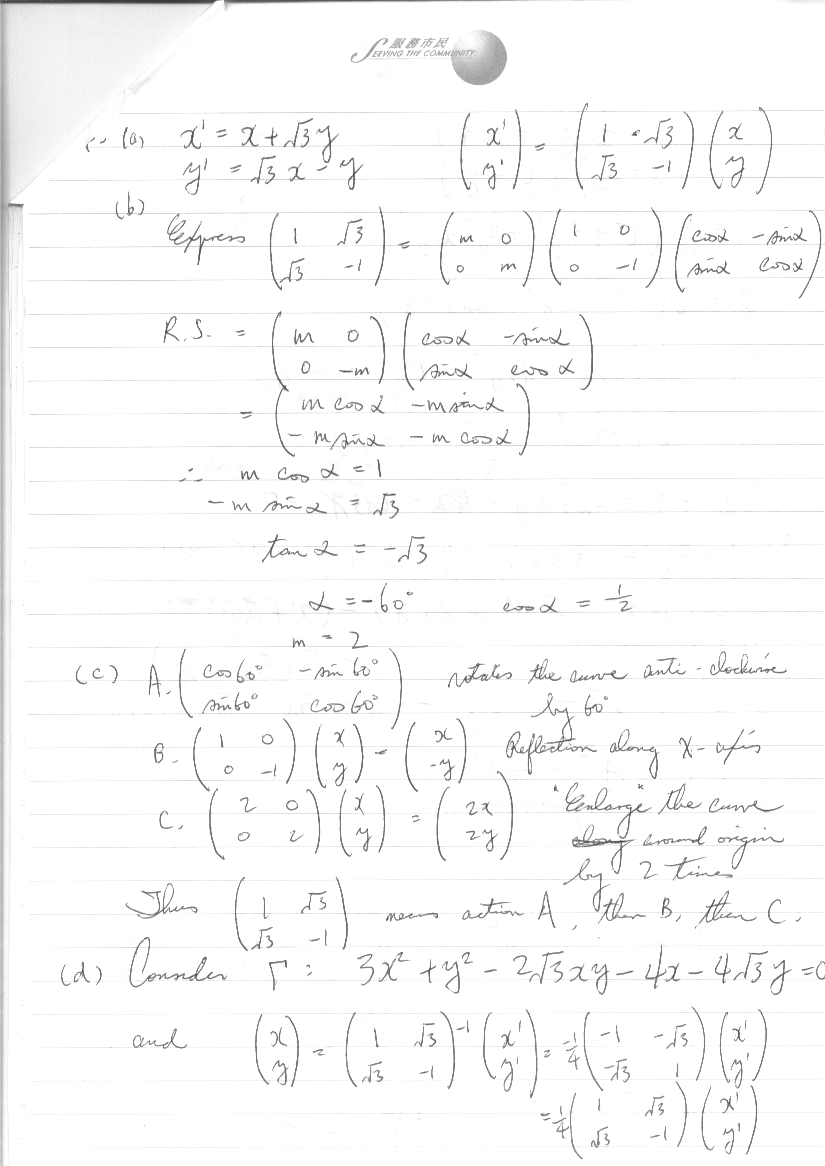 服務市民
SERVING THE COMMUNITY
(a) x' = x + √3 y    (x' ; y') = (1 √3 ; √3 -1) (x ; y)
y' = √3 x - y
(b)
Express (1 √3 ; √3 -1) = (m 0 ; 0 m) (1 0 ; 0 -1) (cosα -sinα ; sinα cosα)
R.S. = (m 0 ; 0 -m) (cosα -sinα ; sinα cosα)
= (m cosα -m sinα ; -m sinα -m cosα)
∴ m cos α = 1
-m sin α = √3
tan α = -√3
α = -60°    cos α = 1/2
m = 2
(c) A. (cos60° -sin60° ; sin60° cos60°) rotates the curve anti-clockwise
by 60°
B. (1 0 ; 0 -1) (x ; y) = (x ; -y) Reflection along X-axis
C. (2 0 ; 0 2) (x ; y) = (2x ; 2y) "Enlarge" the curve
along around origin
by 2 times
Thus (1 √3 ; √3 -1) means action A, then B, then C.
(d) Consider Γ : 3x² + y² - 2√3xy - 4x - 4√3y = 0
and (x ; y) = (1 √3 ; √3 -1)⁻¹ (x' ; y') = -1/4 (-1 -√3 ; -√3 1) (x' ; y')
= 1/4 (1 √3 ; √3 -1) (x' ; y')